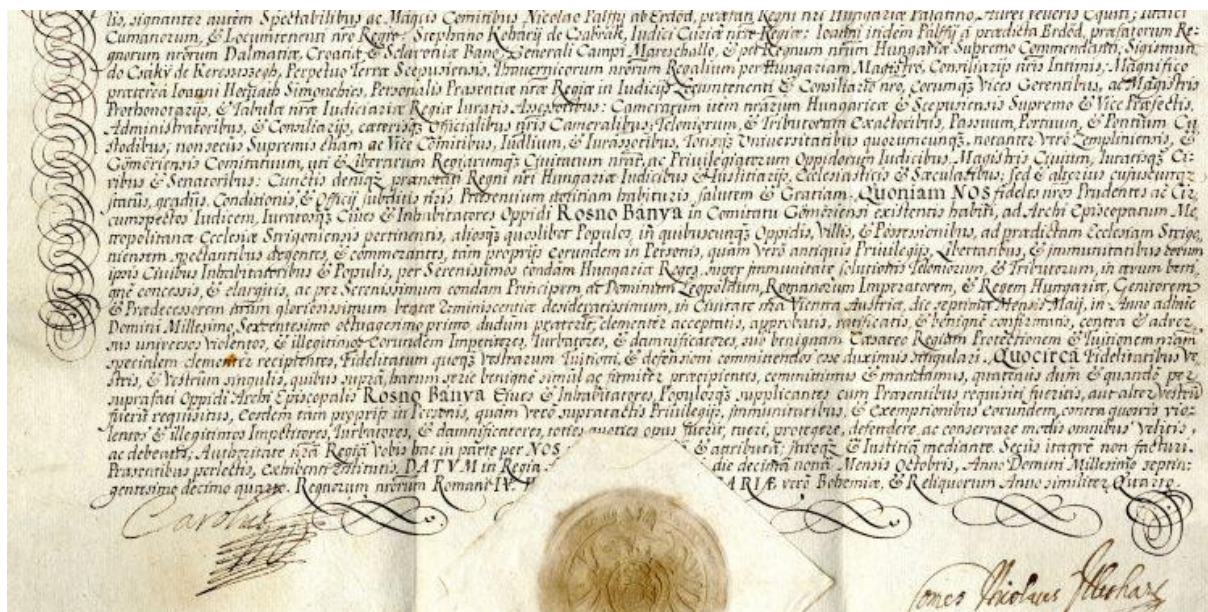 lis, signanter autem Spectabilibus ac Magcis Comitibus Nicolao Palffÿ ab Erdöd, præfati Regni nri Hungariæ Palatino, Aurei Velleris Equiti; Iudici
Cumanorum, & Locumtenenti nro Regio: Stephano Koharÿ de Csabrák, Iudici Curiæ nræ Regiæ: Ioanni itidem Palffÿ á prædicta Erdöd, præfatorum Re-
gnorum nrorum Dalmatiæ, Croatiæ & Sclavoniæ Bano, Generali Campi Mareschallo, & per Regnum nrum Hungariæ Supremo Commendanti, Sigismun-
do Csákÿ de Keresszegh, Perpetuo Terræ Scepusiensis, Thavernicorum nrorum Regalium per Hungariam Magistro, Consiliarijs nris Intimis, Magnifico
præterea Ioanni Horváth Simonchics, Personalis Præsentiæ nræ Regiæ in Iudicijs Locumtenenti & Consiliario nro, eorumqz Vices Gerentibus, ac Magistris
Prothonotarijs, & Tabulæ nræ Iudiciariæ Regiæ Iuratis Assessoribus: Camerarum item nrarum Hungaricæ & Scepusiensis Supremo & Vice Præfectis,
Administratoribus, & Consiliarijs, cæterisqz Officialibus nris Cameralibus; Teloniorum, & Tributorum Exactoribus, Passuum, Portuum, & Pontium Cu-
stodibus; non secus Supremis etiam ac Vice Comitibus, Iudlium, & Iurassoribus, Totisqz Universitatibus quorumcunqz, notanter verò Zempliniensis, &
Gömöriensis Comitatuum, uti & Liberarum Regiarumqz Civitatum nrar, ac Privilegiatorum Oppidorum Iudicibus, Magistris Civium, Iuratisqz Ci-
vibus & Senatoribus: Cunctis deniqz prænotati Regni nri Hungariæ Iudicibus & Iustitiarijs, Ecclesiasticis & Sæcularibus; sed & alterius cujuscunqz
status, gradûs, Conditionis, & Officij subditis nris Præsentium notitiam habituris salutem & Gratiam. Quoniam NOS fideles nros Prudentes ac Cir-
cumspectos Iudicem, Iuratosqz Cives & Inhabitatores Oppidi Rosno Banya in Comitatu Gömöriensi existentis habiti, ad Archi Episcopatum Me-
tropolitanæ Ecclesiæ Strigoniensis pertinentis, aliosqz quoslibet Populos, in quibuscunqz Oppidis, Villis, & Possessionibus, ad prædictam Ecclesiam Strigo-
niensem spectantibus degentes, & commorantes, tam proprijs eorundem in Personis, quàm verò antiquis Privilegijs, Libertatibus, & immunitatibus eorum
ipsis Civibus Inhabitatoribus & Populis, per Serenissimos condam Hungariæ Reges, super immunitate solutionis Teloniorum, & Tributorum, in ævum beni-
gnè concessis, & elargitis, ac per Serenissimum condam Principem ac Dominum Leopoldum, Romanorum Imperatorem, & Regem Hungariæ, Genitorem
& Prædecessorem nrum gloriosissimum beatæ reminiscentiæ desideratissimum, in Civitate nra Vienna Austriæ, die septima Mensis Maij, in Anno adhuc
Domini Millesimo, Sexcentesimo octuagesimo primo, dudum præterito, clementer acceptatis, approbatis, ratificatis, & benignè confirmatis, contra & adver-
sus universos violentos, & illegitimos eorundem Impetitores, Turbatores, & damnificatores, sub benignam Cæsareo Regiam Protectionem & Tuitionem nram
specialem clementer recipientes, Fidelitatum quoqz Vestrarum Tuitioni, & defensioni committendos esse duximus singulari. Quocirca Fidelitatibus Ve-
stris, & Vestrûm singulis, quibus suprà, harum serie benignè simul ac firmiter præcipientes, committimus & mandamus, quatenus dum & quando per
suprafati Oppidi Archi Episcopalis Rosno Banya Cives & Inhabitatores, Populosqz supplicantes cum Præsentibus requisiti fueritis, aut alter Vestrûm
fuerit requisitus, Eosdem tam proprijs in Personis, quam verò supratactis Privilegijs, immunitatibus, & Exemptionibus eorundem, contra quosvis vio-
lentos & illegitimos Impetitores, Turbatores, & damnificatores, toties quoties opus fuerit, tueri, protegere, defendere, ac conservare modis omnibus velitis,
ac debeatis; Authoritate nra Regia Vobis hac in parte per NOS & attributa; jureqz & Iustitia mediante. Secùs itaqz non facturi.
Præsentibus perlectis, Exhibenti restitutis. DATUM in Regia die decima nona Mensis Octobris, Anno Domini Millesimo septin-
gentesimo decimo quarto. Regnorum nrorum Romani IV. GARIÆ verò Bohemiæ, & Reliquorum Anno similiter Quarto.
Carolus
Comes Nicolaus Illeshazÿ